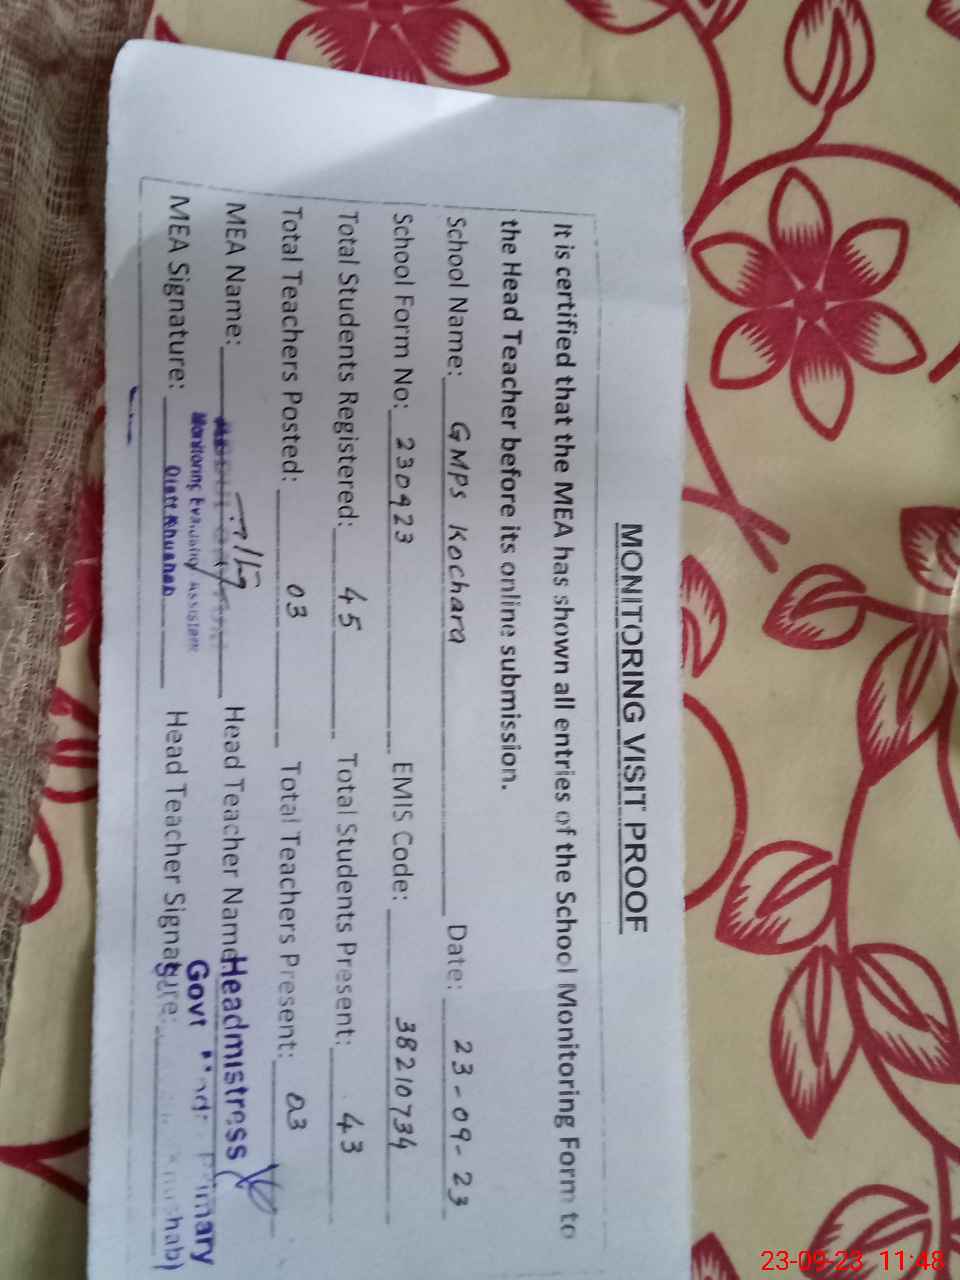 MONITORING VISIT PROOF
It is certified that the MEA has shown all entries of the School Monitoring Form to
the Head Teacher before its online submission.
School Name: GMPS Kochara Date: 23-09-23
School Form No: 230923 EMIS Code: 38210734
Total Students Registered: 45 Total Students Present: 43
Total Teachers Posted: 03 Total Teachers Present: 03
MEA Name: Head Teacher Name: Headmistress
Monitoring Evaluating Assistant Govt Primary
MEA Signature: Distt Khushab Head Teacher Signature:
23-09-23 11:48